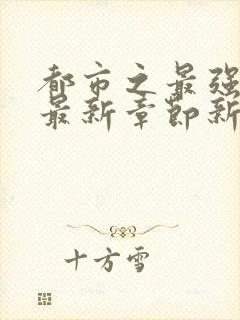 都市之最强
最新章节新
十方雪